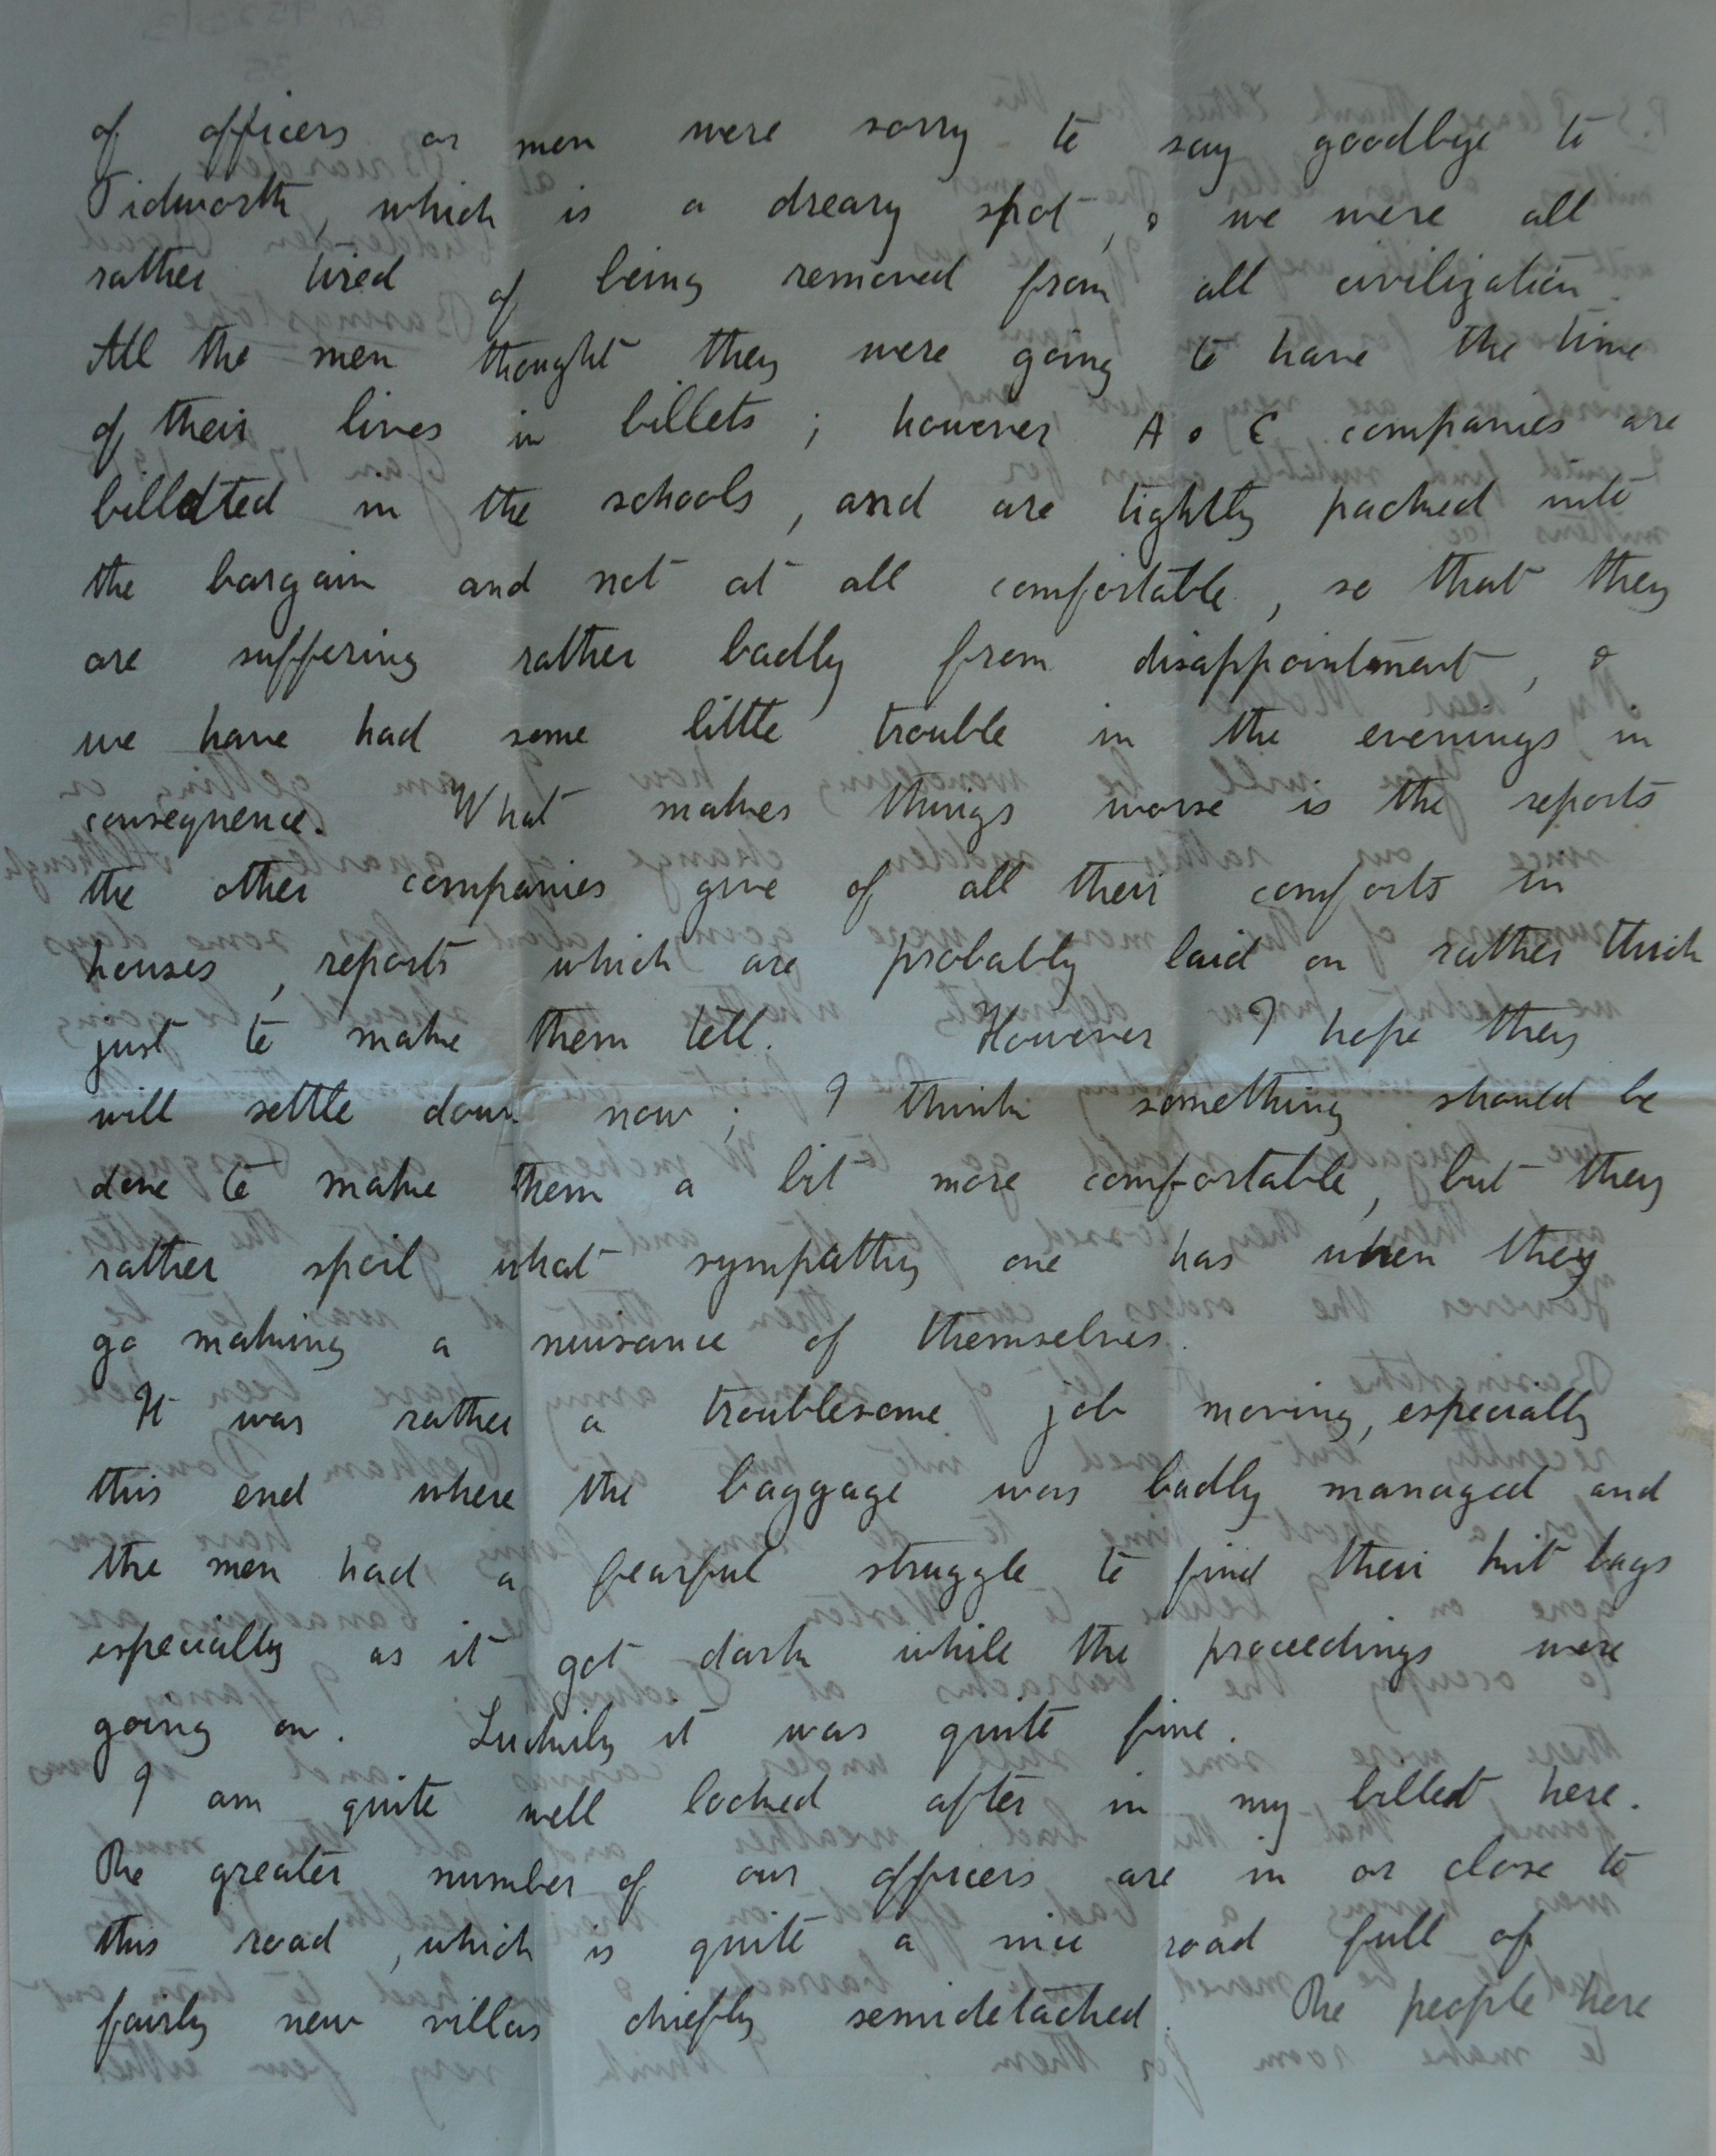 of officers or men were sorry to say goodbye to
Tidworth, which is a dreary spot, & we were all
rather tired of being removed from all civilization.
All the men thought they were going to have the time
of their lives in billets; however A & C companies are
billeted in the schools, and are tightly packed into
the bargain and not at all comfortable, so that they
are suffering rather badly from disappointment, &
we have had some little trouble in the evenings in
consequence. What makes things worse is the reports
the other companies give of all their comforts in
houses, reports which are probably laid on rather thick
just to make them tell. However I hope they
will settle down now; I think something should be
done to make them a bit more comfortable, but they
rather spoil what sympathy one has when they
go making a nuisance of themselves.
It was rather a troublesome job moving, especially
this end where the baggage was badly managed and
the men had a fearful struggle to find their kit bags
especially as it got dark while the proceedings were
going on. Luckily it was quite fine.
I am quite well looked after in my billet here.
The greater number of our officers are in or close to
this road, which is quite a nice road full of
fairly new villas chiefly semidetached. The people here